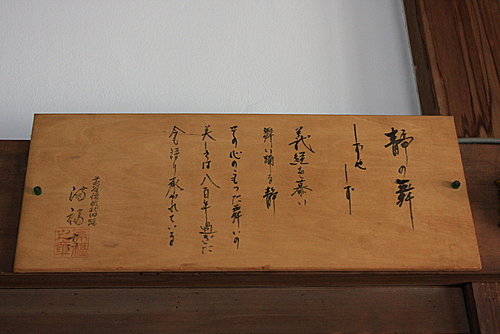 静の舞
しずや しず
義経を慕い
舞い踊る静
その心のこもった舞いの
美しさは八百年過ぎた
今も語り承がれている
満福